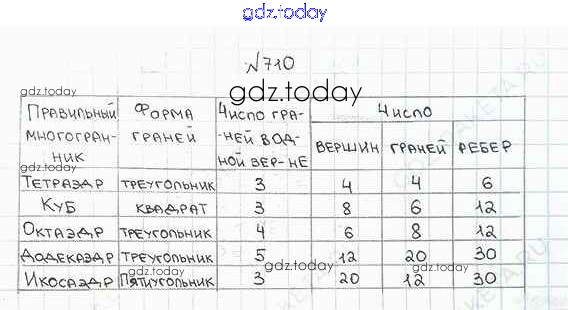 gdz.today
№710
gdz.today
gdz.today
Правильный многогран-ник Форма граней Число гра-ней в од-ной вер-не Число
вершин граней ребер
Тетраэдр треугольник 3 4 4 6
Куб квадрат 3 8 6 12
Октаэдр треугольник 4 6 8 12
Додекаэдр треугольник 5 12 20 30
Икосаэдр пятиугольник 3 20 12 30
gdz.today
gdz.today
gdz.today
gdz.today